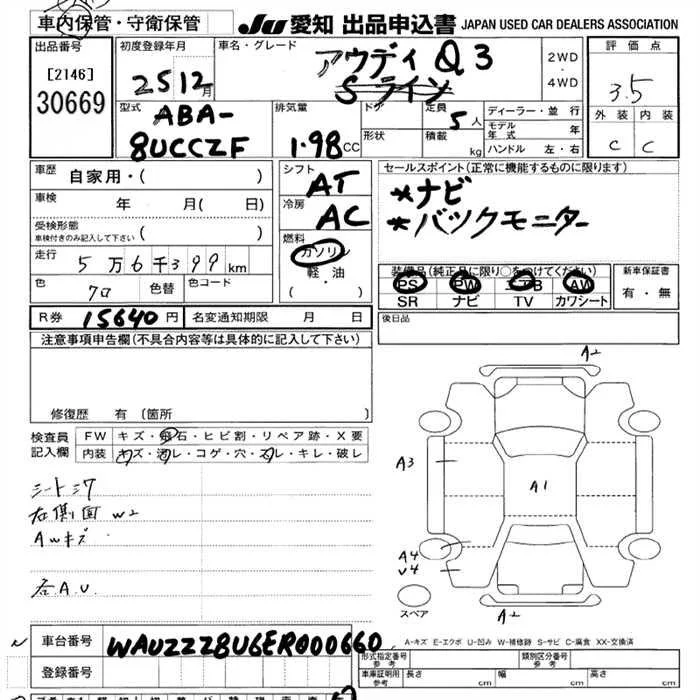 車内保管・守衛保管
JU 愛知 出品申込書 JAPAN USED CAR DEALERS ASSOCIATION
出品番号 [2146] 30669
初度登録年月 25 12月
車名・グレード アウディ Q3
Sライン
2WD・4WD
評価点 3.5
外装 内装
C C
型式 ABA-8UCCZF
排気量 1.98 CC
ドア
形状
定員 5人
積載 kg
ディーラー・並行
モデル年式 年
ハンドル 左・右
車歴 自家用・( )
車検 年 月( 日)
受検形態
車検付きのみ記入して下さい ( )
走行 5万6千399km
色 クロ 色替 色コード
シフト AT
冷房 AC
燃料 ガソリン
軽・油
( ・ )
セールスポイント(正常に機能するものに限ります)
*ナビ
*バックモニター
装備品(純正品に限り○をつけてください)
PS PW AW
SR ナビ TV カワシート
新車保証書
有・無
R券 15640円 名変通知期限 月 日
後日品
注意事項申告欄(不具合内容等は具体的に記入して下さい)
修復歴 有 〔箇所 〕
検査員記入欄
FW キズ・飛石・ヒビ割・リペア跡・X要
内装 キズ・汚レ・コゲ・穴・スレ・キレ・破レ
シート
右側面 W2
AWキズ
各A.U.
A2
A3
A1
A4
U4
A2
スペア
車台番号 WAUZZZ8U6ER000660
登録番号
A-キズ E-エクボ U-凹み W-補修跡 S-サビ C-腐食 XX-交換済
形式指定番号 参考
類別区分番号 参考
車庫証明用 参考 長さ cm 幅 cm 高さ cm